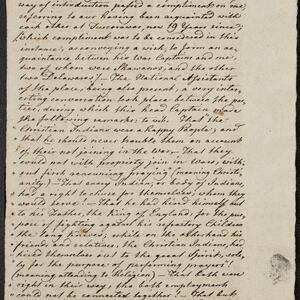 way of introduction passed a compliment on me,
referring to our having been acquainted with
each other at Tuscorawas, now 19 Years since;
(which compliment was to be considered in this
instance, as conveying a wish, to form an ac-
quaintance between his War Captains and me;
two of whom were Shawanos, and the other
two Delawares)— The National Assistants
of the place, being also present, a very inter-
esting conversation took place between the par-
ties, during which this head Captain made
the following remarks; to wit: That the
Christian Indians were a happy People; and
that he should never trouble them on account
of their not joining in the War.— That they
could not with propriety join in Wars, with-
out first renouncing praying (meaning Christi-
anity) That every Indian, or body of Indians,
had a right to chuse for themselves, whom they
would serve!— That he had hired himself out
to his Father, the King of England, for the pur-
pose of fighting against his refractory Children
the Long Knives; while on the other hand his
friends and relatives, the Christian Indians, had
hired themselves out to the great Spirit, sole-
ly for the purpose of performing prayers!
(meaning attending to Religion)— That both were
right in their way, tho both employments
could not be connected together!— That